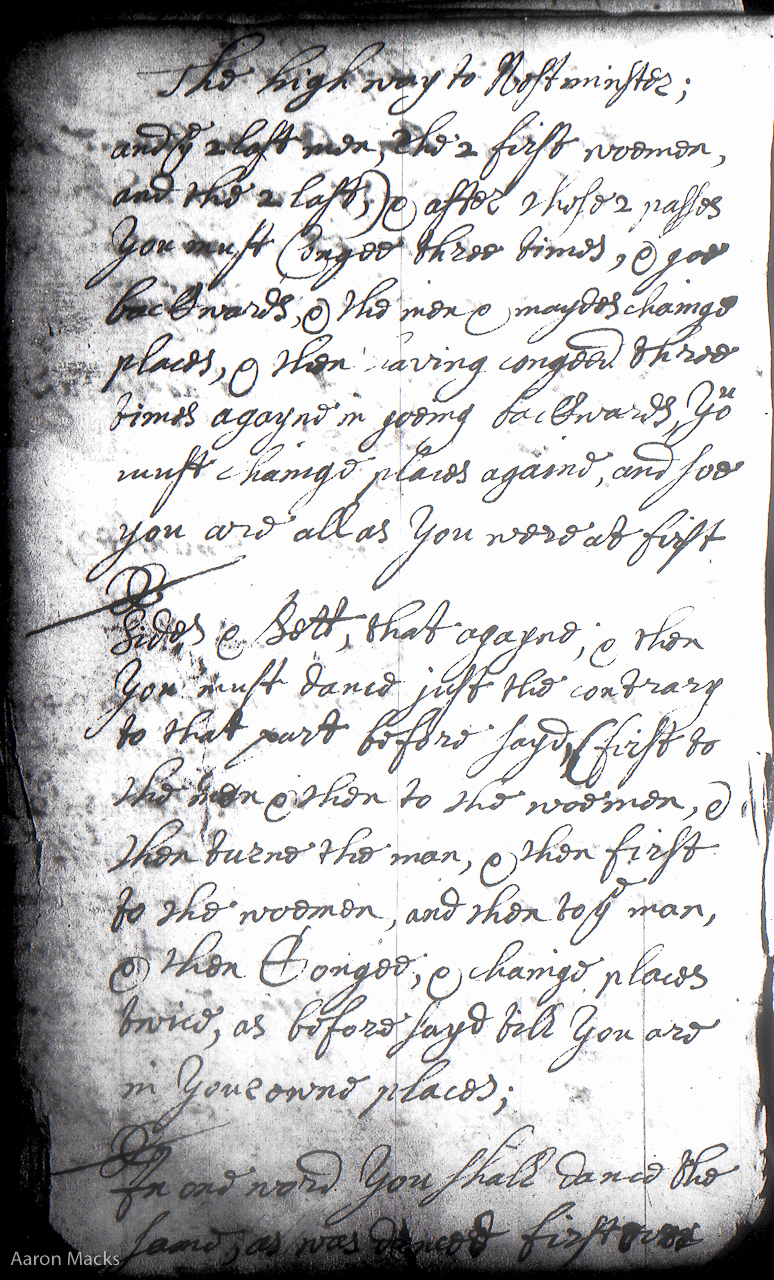 The high way to Westminster;
and ye 2 last men, the 2 first woemen,
and the 2 last;) & after those 2 passes
You must Congee three times, & goe
backwards, & the men & maydes chainge
places, & then having congeed three
times agayne in goeing backwards, Yö
must chainge places againe, and soe
you are all as You were at first
Sides & Sett, that agayne, & then
You must dance just the contrary
to that part before sayd, (first to
the men & then to the woemen, &
then turne the man, & then first
to the woemen, and then to ye man,
& then Congee, & chainge places
twice, as before sayd till You are
in Your owne places;
In one word You shall dance the
same, as was danced first
Aaron Macks